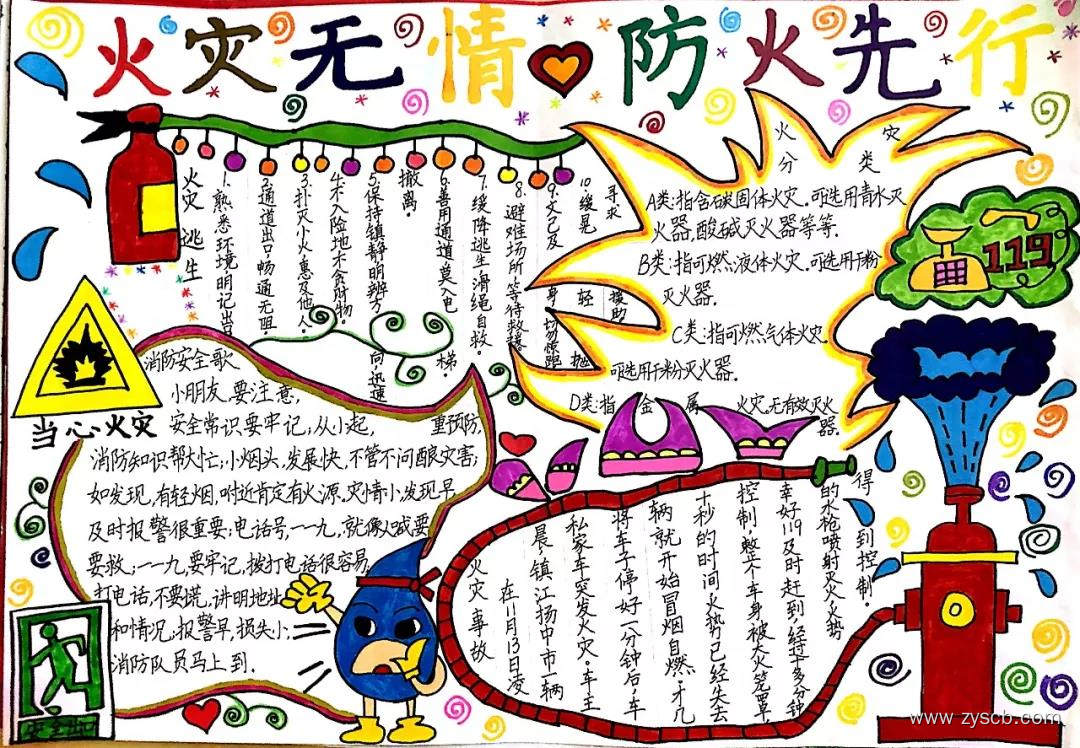 火灾无情防火先行
火灾逃生
1.熟悉环境明记出口
2.通道出口,畅通无阻
3.扑灭小火,惠及他人.
4.不入险地不贪财物.
5.保持镇静明辨方向,迅速
撤离.
6.善用通道莫入电梯.
7.缓降逃生滑绳自救.
8.避难场所等待救援.
9.火已及身切勿惊跑
10.缓晃轻抛
寻求援助
火灾
分类
A类:指含碳固体火灾.可选用青水灭
火器,酸碱灭火器等等.
B类:指可燃液体火灾.可选用干粉
灭火器.
C类:指可燃气体火灾.
可选用干粉灭火器.
D类:指金属火灾,无有效灭火
器.
119
当心火灾
消防安全歌
小朋友,要注意,
安全常识要牢记;从小起,重预防,
消防知识帮大忙;小烟头,发展快,不管不问酿灾害;
如发现,有轻烟,附近肯定有火源,灾情小发现早,
及时报警很重要;电话号,一一九,就像火贼要
要救;一一九,要牢记,拨打电话很容易;
打电话,不要慌,讲明地址
和情况;报警早,损失小,
消防队员马上到.
安全出口
火灾事故
在11月13日凌
晨镇江扬中市一辆
私家车突发火灾.车主
将车子停好一分钟后,车
辆就开始冒烟自燃.才几
十秒的时间火势已经失去
控制,整个车身被大火笼罩
幸好119及时赶到,经过十多分钟
的水枪喷射灭火,火势
得到控制.
www.zyscb.com